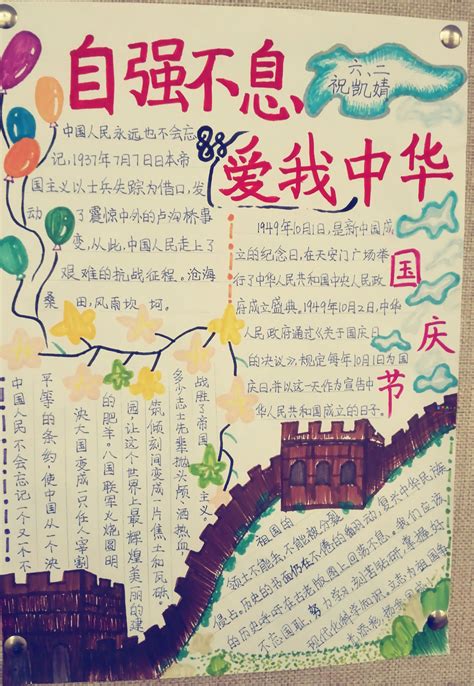 自强不息
爱我中华
六、二
祝凯婧
中国人民永远也不会忘
记，1937年7月7日日本帝
国主义以士兵失踪为借口，发
动了震惊中外的卢沟桥事
变，从此，中国人民走上了
艰难的抗战征程。沧海
桑田，风雨坎坷。
1949年10月1日，是新中国成
立的纪念日，在天安门广场举
行了中华人民共和国中央人民政
府成立盛典，1949年10月2日，中华
人民政府通过《关于国庆日
的决议》，规定每年10月1日为国
庆日，并以这一天作为宣告中
华人民共和国成立的日子。
国庆节
中国人民不会忘记一个又一个不
平等的条约，使中国从一个泱
泱大国变成一只任人宰割
的肥羊，八国联军火烧圆明
园，让这个世界上最辉煌美丽的建
筑倾刻间变成一片焦土和瓦砾。
多少志士先辈抛头颅，洒热血
战胜了帝国主义。
祖国的
领土不能丢，不能被分裂
侵占，历史的书面仍在不倦的翻动，复兴中华民族
的历史呼吁在古老版图上回荡不息。我们应该
不忘国耻，努力学习，刻苦钻研，掌握好
现代化科学知识，立志为祖国